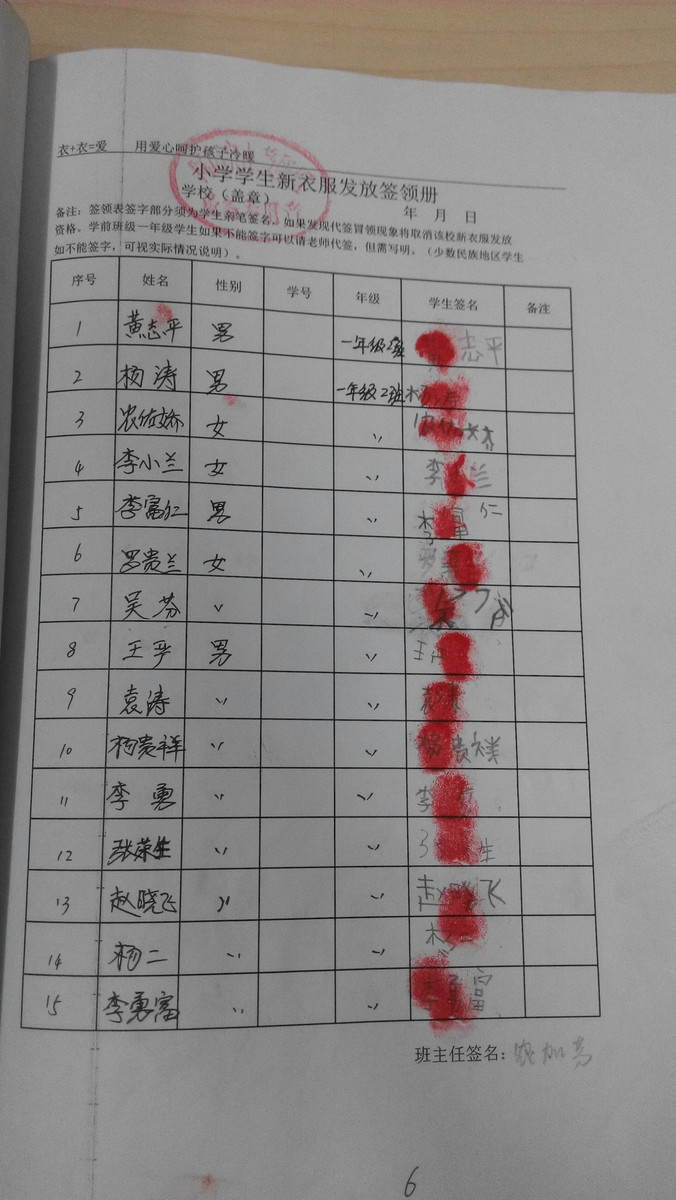 衣+衣=爱 用爱心呵护孩子冷暖
小学学生新衣服发放签领册
学校（盖章） 年 月 日
备注：签领表签字部分须为学生亲笔签名，如果发现代签冒领现象将取消该校新衣服发放
资格。学前班级一年级学生如果不能签字可以请老师代签，但需写明。（少数民族地区学生
如不能签字，可视实际情况说明）。
序号 姓名 性别 学号 年级 学生签名 备注
1 黄志平 男 一年级2班 志平
2 杨涛 男 一年级2班 杨
3 农佑娇 女 〃
4 李小兰 女 〃 李 兰
5 李富仁 男 〃 李富仁
6 罗贵兰 女 〃 罗
7 吴芬 〃 〃
8 王平 男 〃 王
9 袁涛 〃 〃
10 杨贵祥 〃 〃 杨贵祥
11 李勇 〃 〃 李
12 张荣生 〃 〃 张 生
13 赵晓飞 〃 〃 赵晓飞
14 杨二 〃 〃
15 李勇富 〃 〃 李勇富
班主任签名：农加
6